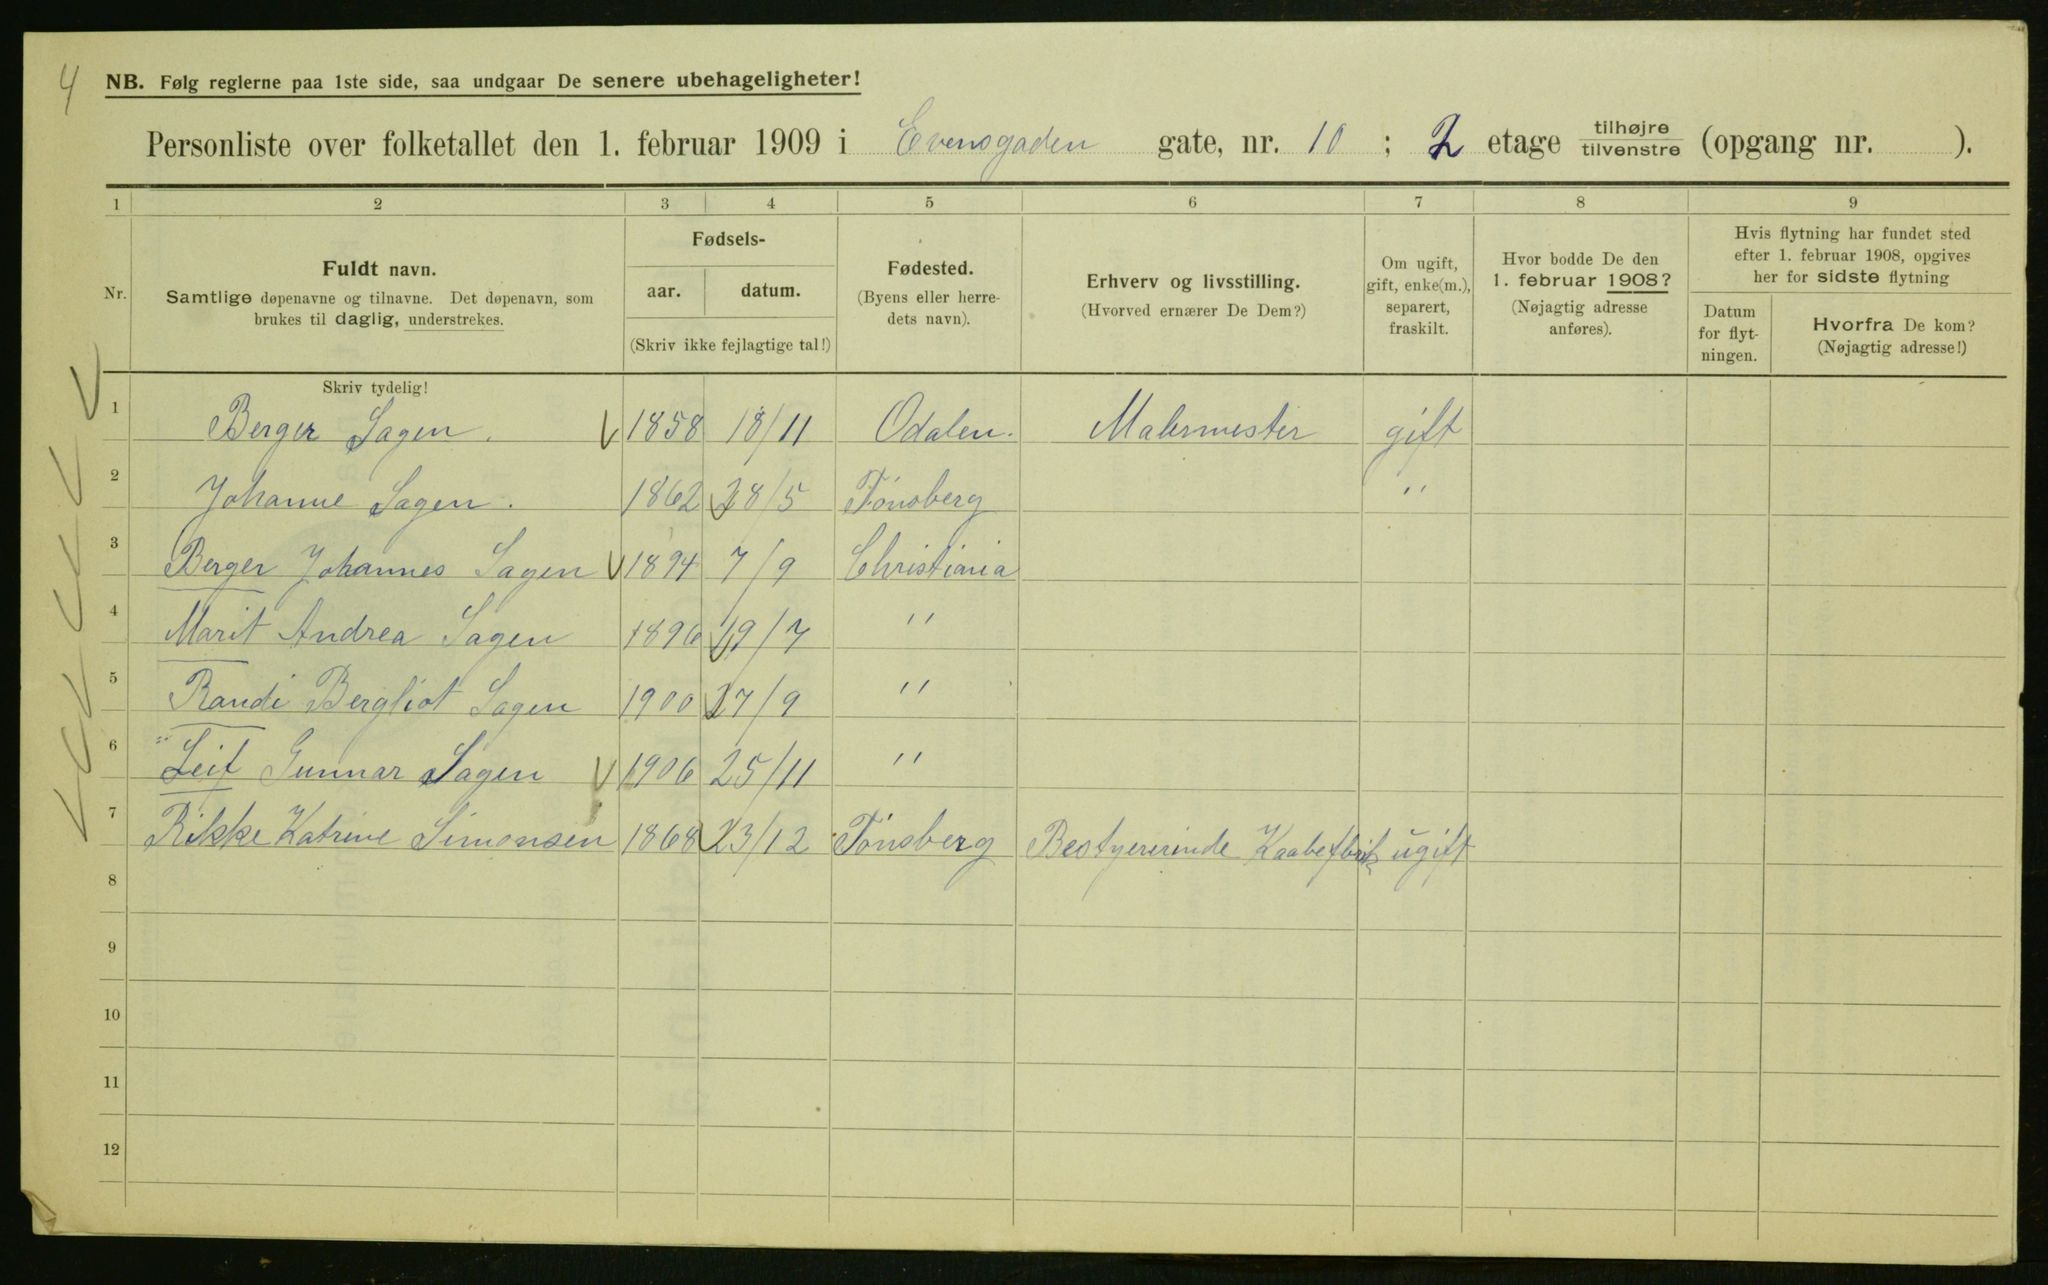 4
NB. Følg reglerne paa 1ste side, saa undgaar De senere ubehageligheter!
Personliste over folketallet den 1. februar 1909 i Evensgaden gate, nr. 10 ; 2 etage tilhøjre / tilvenstre (opgang nr. ).
1 2 3 4 5 6 7 8 9
Nr.
Fuldt navn.
Samtlige døpenavne og tilnavne. Det døpenavn, som
brukes til daglig, understrekes.
Skriv tydelig!
Fødsels-
aar. datum.
(Skriv ikke fejlagtige tal!)
Fødested.
(Byens eller herre-
dets navn).
Erhverv og livsstilling.
(Hvorved ernærer De Dem?)
Om ugift,
gift, enke(m.),
separert,
fraskilt.
Hvor bodde De den
1. februar 1908?
(Nøjagtig adresse
anføres).
Hvis flytning har fundet sted
efter 1. februar 1908, opgives
her for sidste flytning
Datum
for flyt-
ningen.
Hvorfra De kom?
(Nøjagtig adresse!)
1 Berger Sagen. 1858 18/11 Odalen. Malermester gift
2 Johanne Sagen. 1862 28/5 Tönsberg "
3 Berger Johannes Sagen 1894 7/9 Christiania
4 Marit Andrea Sagen 1896 19/7 "
5 Randi Bergliot Sagen 1900 27/9 "
6 Leif Gunnar Sagen 1906 25/11 "
7 Rikke Katrine Simonsen 1868 23/12 Tönsberg Bestyererinde ugift
8
9
10
11
12